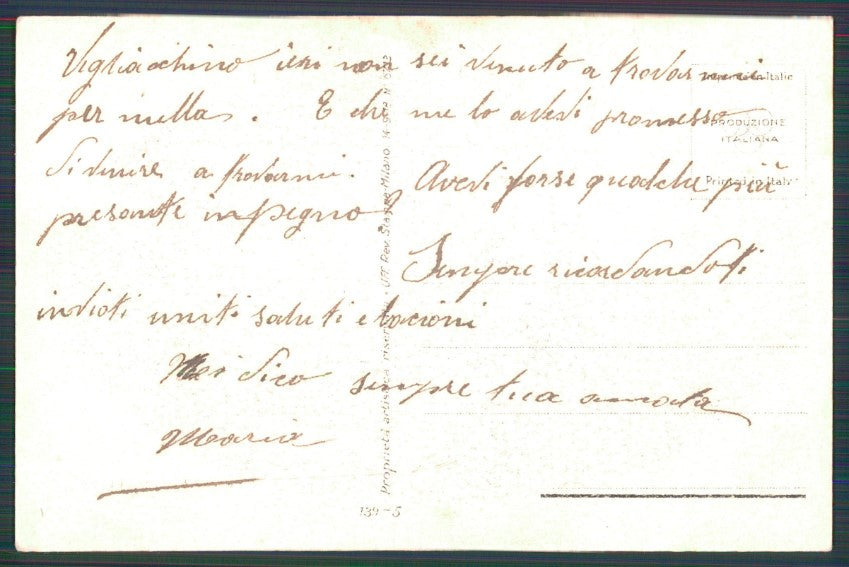 Vigliacchino ieri non sei venuto a trovarmi
per nulla. E che me lo avevi promesso
di venire a trovarmi. Avevi forse qualche più
presante impegno?
Sempre ricordandoti
indioti uniti saluti e bacioni
dico sempre tua amata
Maria
Proprietà artistica riser
Milano
Italia
PRODUZIONE
ITALIANA
Printed in Italy
139-5